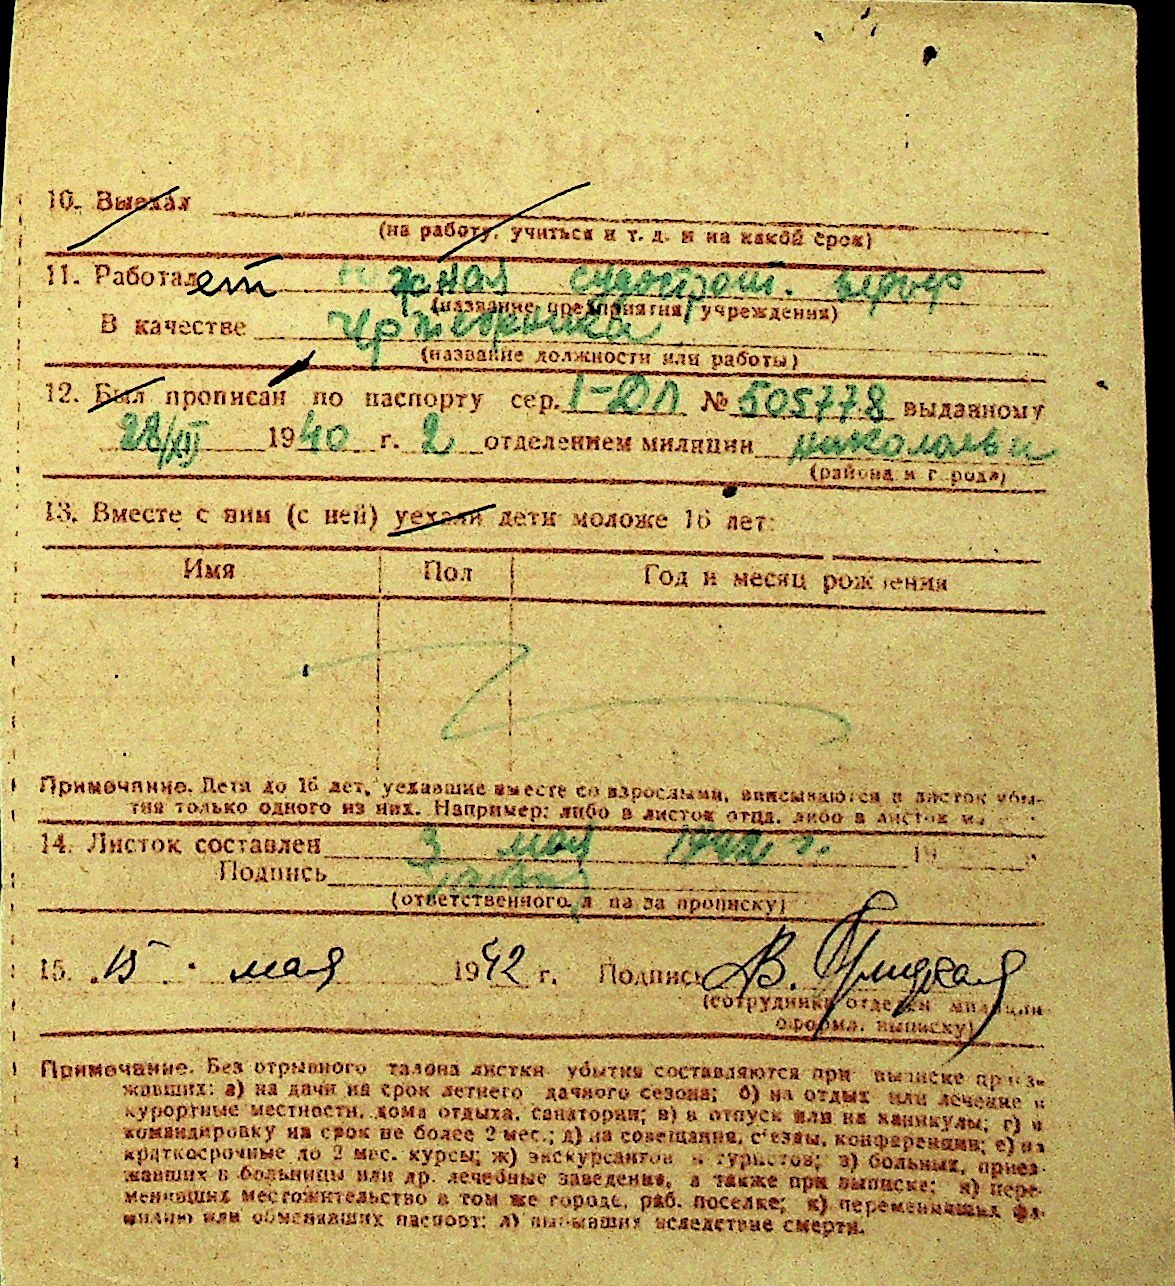 10. Выехал
(на работу, учиться и т. д. и на какой срок)
11. Работает Южная судостроит. верфь
(название предприятия, учреждения)
В качестве чертежника
(название должности или работы)
12. Был прописан по паспорту сер. I-ДЛ № 505778 выданному
28/III 1940 г. 2 отделением милиции
(района и города)
13. Вместе с ним (с ней) уехали дети моложе 16 лет:
Имя Пол Год и месяц рождения
Примечание. Дети до 16 лет, уехавшие вместе со взрослыми, вписываются в листок убы-
тия только одного из них. Например: либо в листок отца, либо в листок
14. Листок составлен 3 мая 1942 г. 19
Подпись
(ответственного лица за прописку)
15. 15 мая 1942 г. Подпись В.
(сотрудника отделен милиции
оформл. выписку)
Примечание. Без отрывного талона листки убытия составляются при выписке приез-
жавших: а) на дачи на срок летнего дачного сезона; б) на отдых или лечение в
курортные местности, дома отдыха, санатории; в) в отпуск или на каникулы; г) в
командировку на срок не более 2 мес.; д) на совещания, с'езды, конференции; е) на
краткосрочные до 2 мес. курсы; ж) экскурсантов и туристов; з) больных, приез-
жавших в больницы или др. лечебные заведения, а также при выписке; и) пере-
менивших местожительство в том же городе, раб. поселке; к) переменивших фа-
милию или обменявших паспорт; л) выбывших вследствие смерти.